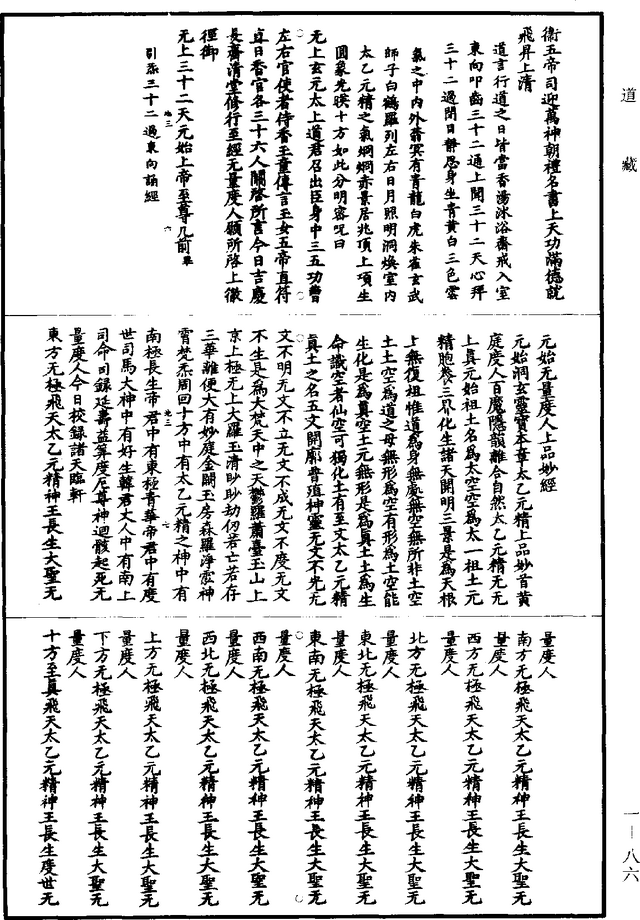 道藏
衞五帝司迎萬神朝禮名書上天功滿德就
飛昇上清
道言行道之日皆當香湯沐浴齋戒入室
東向叩齒三十二通上聞三十二天心拜
三十二過閉目靜思身坐青黃白三色雲
氣之中內外蓊冥有青龍白虎朱雀玄武
師子白鶴羅列左右日月照明洞煥室內
太乙元精之氣烱烱赤景居兆頂上項生
圓象光暎十方如此分明密呪曰
无上玄元太上道君召出臣身中三五功曹
左右官使者侍香玉童傳言玉女五帝直符
直日香官各三十六人關啓所言今日吉慶
長齋清堂修行至經无量度人願所啓上徹
徑御
无上三十二天元始上帝至尊几前畢
引炁三十二過東向誦經
元始无量度人上品妙經
元始洞玄靈寶本章太乙元精上品妙音黃
庭度人百魔隱韻離合自然太乙元精无无
上真元始祖土名為太空空為太一祖土元
精胞養三界化生諸天開明三景是為天根
上無復祖惟道為身無處無空無所非土空
土土空為道之母無形為空有形為土空能
生化是為真空土元無形是為真土土為生
命識空者仙空可獨化土有至文太乙元精
真土之名五文開廓普殖神靈无文不光无
文不明无文不立无文不成无文不度无文
不生是為大梵天中之天鬱羅蕭臺玉山上
京上極无上大羅玉清眇眇劫仞若亡若存
三華離便大有妙庭金闕玉房森羅淨泓神
霄梵炁周回十方中有太乙元精之神中有
南極長生帝君中有東極青華帝君中有度
世司馬大神中有好生韓君丈人中有南上
司命司錄延壽益筭度厄尊神迴骸起死无
量度人今日校錄諸天臨軒
東方无極飛天太乙元精神王長生大聖无
量度人
南方无極飛天太乙元精神王長生大聖无
量度人
西方无極飛天太乙元精神王長生大聖无
量度人
北方无極飛天太乙元精神王長生大聖无
量度人
東北无極飛天太乙元精神王長生大聖无
量度人
東南无極飛天太乙元精神王長生大聖无
量度人
西南无極飛天太乙元精神王長生大聖无
量度人
西北无極飛天太乙元精神王長生大聖无
量度人
上方无極飛天太乙元精神王長生大聖无
量度人
下方无極飛天太乙元精神王長生大聖无
量度人
十方至真飛天太乙元精神王長生度世无
一—八六